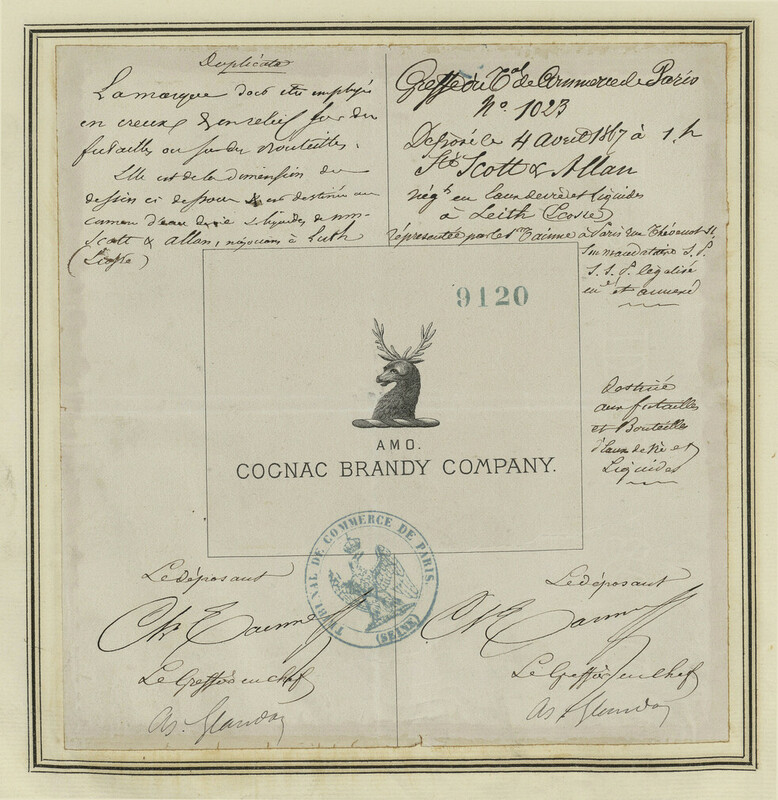 Duplicata
La marque doit être employée
en creux & en relief sur des
futailles ou sur des bouteilles.
Elle est de la dimension du
dessin ci dessous & est destinée au
d'eau de vie & liquides de MM
Scott & Allan, négociants à Leith
(Écosse)
Greffe du Tal de Commerce de Paris
No. 1023
Déposé le 4 avril 1867 à 1. h
Scott & Allan
négts en Eaux de vie et liquides
à Leith (Ecosse)
représentée par le Sr Taimne à Paris rue Thévenot
Son mandataire S. P.
S. S. P. légalisé
et annexé
Destinée
aux futailles
et Bouteilles
d'Eaux de Vie et
Liquides
9120
AMO.
COGNAC BRANDY COMPANY.
TRIBUNAL DE COMMERCE DE PARIS.
(SEINE)
Le déposant
Le Greffier en chef
Le déposant
Le Greffier en chef